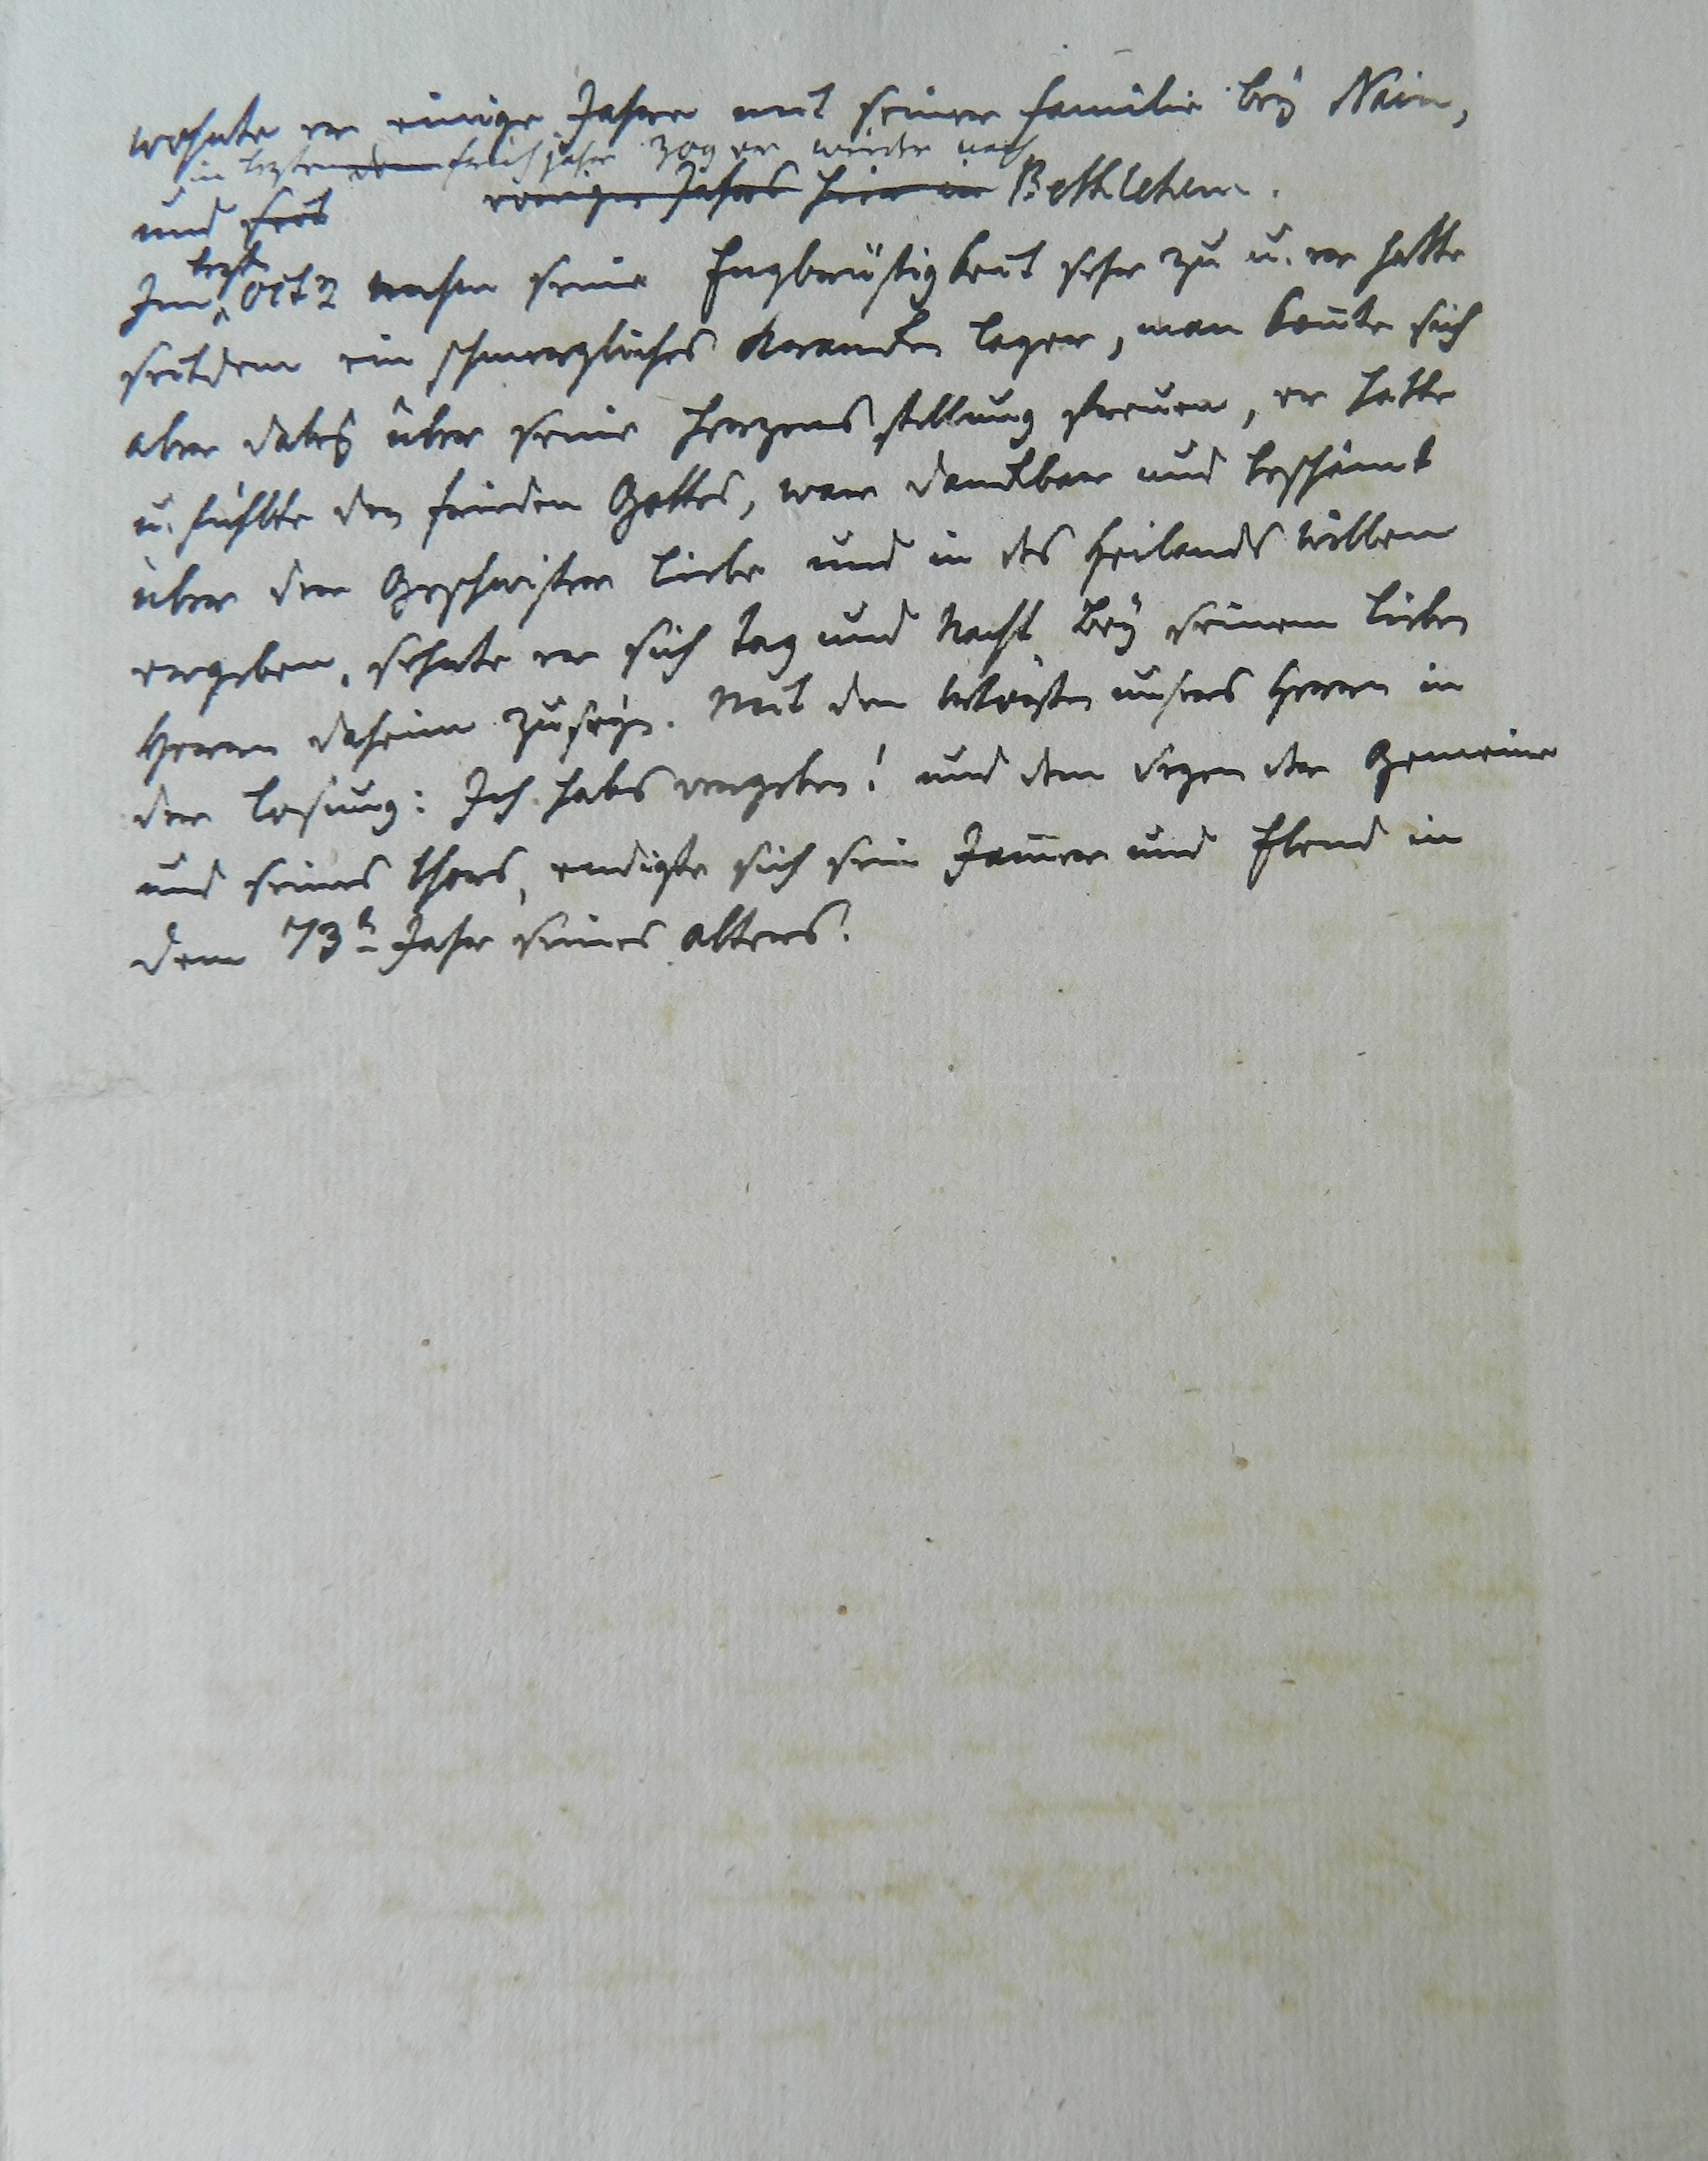 wohnte er einige Jahre mit seiner Familie bey Nain,
in lezten dem Frühjahr zog er wieder nach
und seit vorigen Jahrs hier in Bethlehem.
lezt
Im Octr nahm seine Engbrüstigkeit sehr zu u. er hatte
seitdem ein schmerzliches Krancken lager, man konte sich
aber dabey über seine Herzens stellung freuen, er hatte
u. fühlte den Frieden Gottes, war danckbar und beschämt
über der Geschwister Liebe und in des Heilands Willen
ergeben, sehnte er sich Tag und Nacht bey seinem lieben
Herrn daheim zu seyn. Mit den Worten unsers Herrn in
der Losung: Ich habs vergeben! und dem Segen der Gemeine
und seines Chors, endigte sich sein Jam̄er und Elend in
dem 73n Jahr seines Alters.